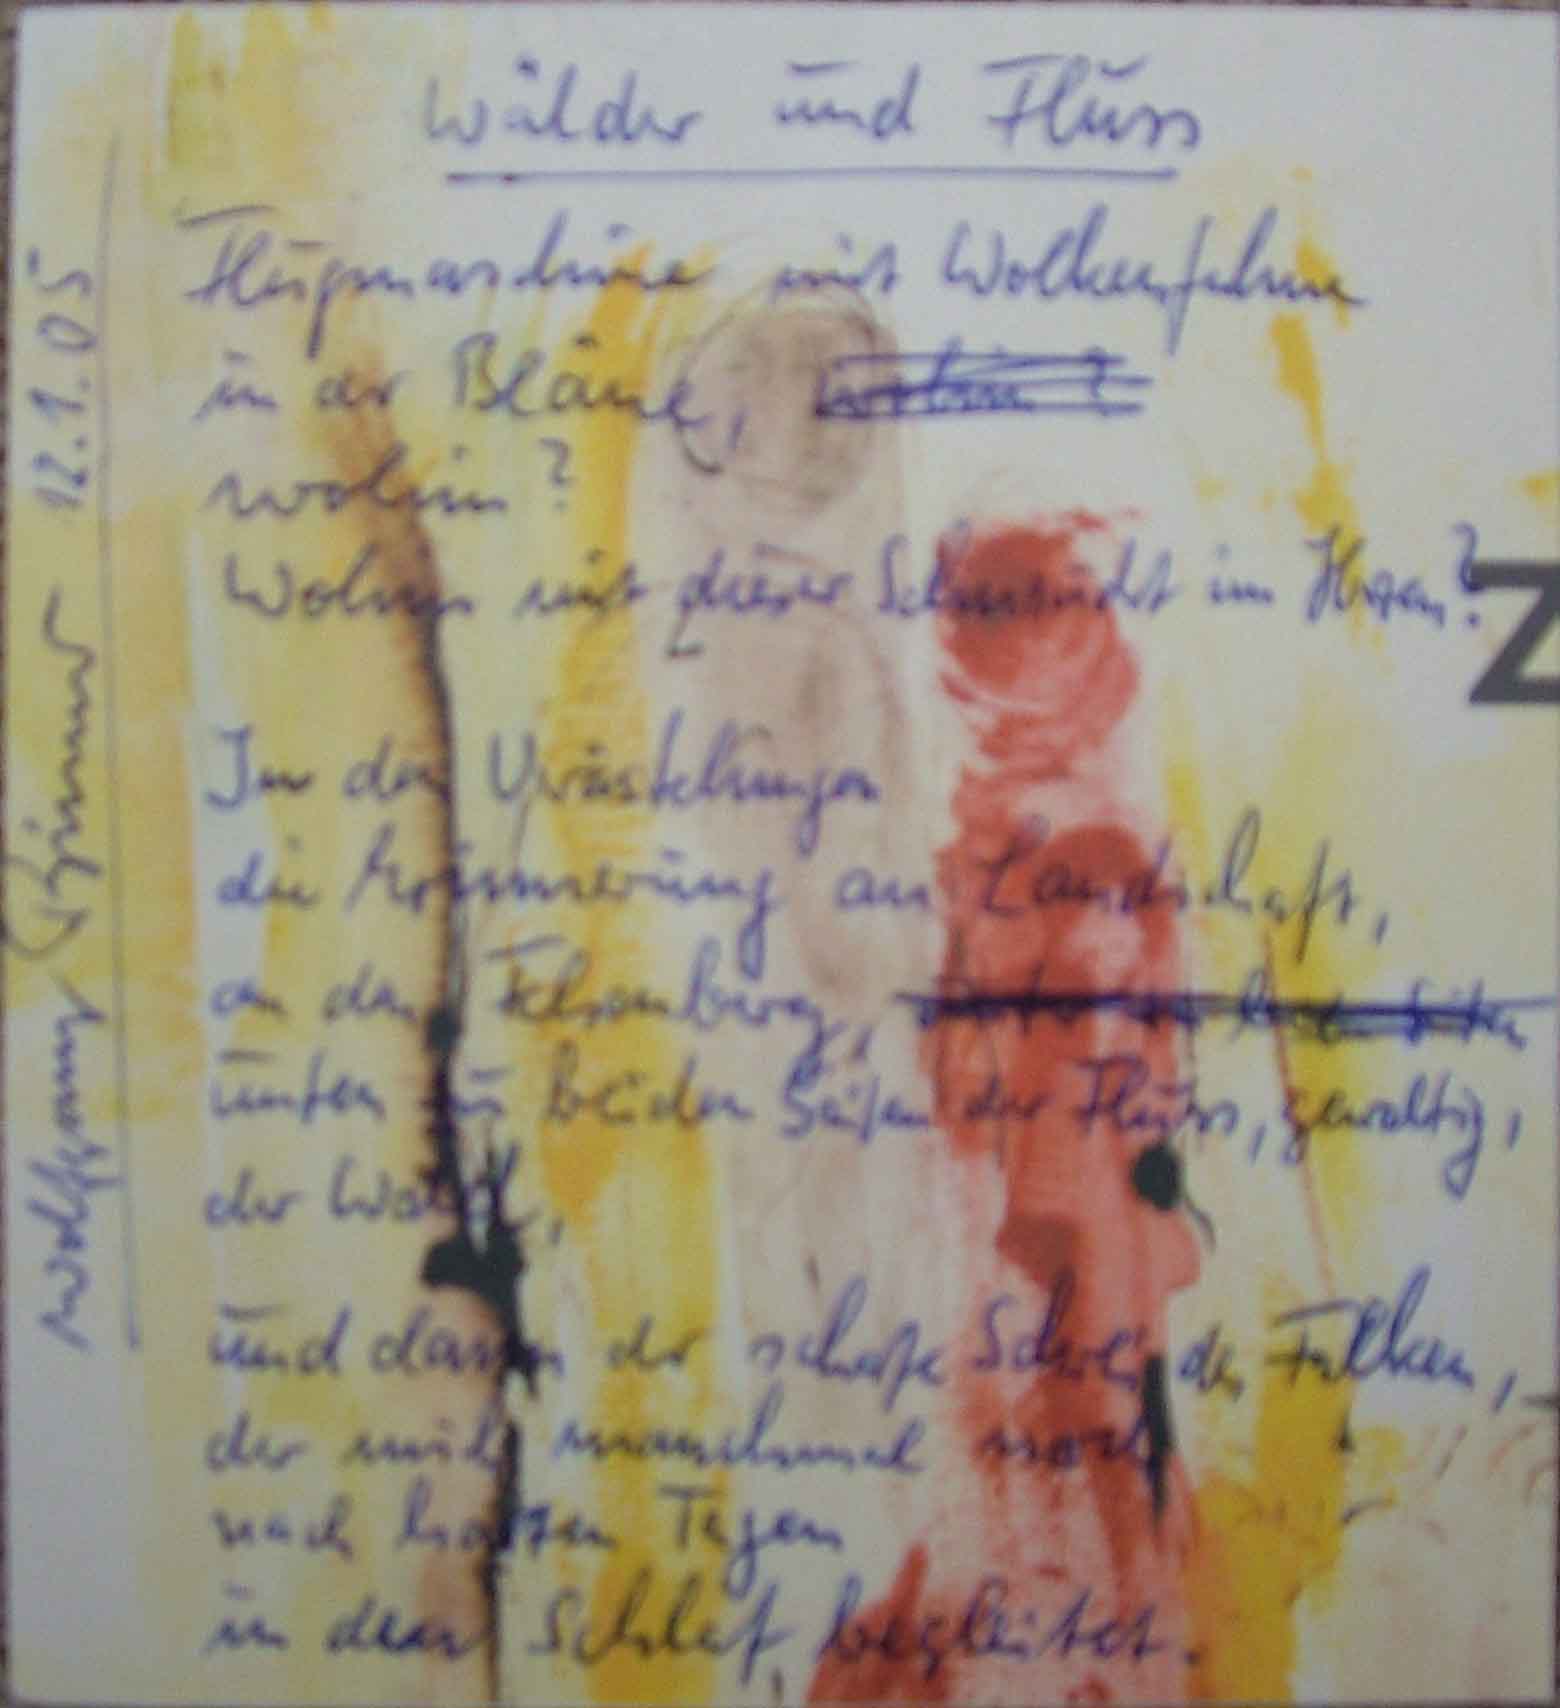 Wälder und Fluss
Flugmaschine mit Wolkenfahne
in der Bläue, wohin?
wohin?
Wohin mit dieser Sehnsucht im Herzen?
In den Verästelungen
die Erinnerung an Landschaft,
an den Felsenberg,
unten zu beiden Seiten der Fluss, gewaltig,
der Wald,
und dann der scharfe Schrei des Falken,
der mich manchmal noch
nach Tagen
in den Schlaf begleitet.
Wolfgang 12.1.05
Z